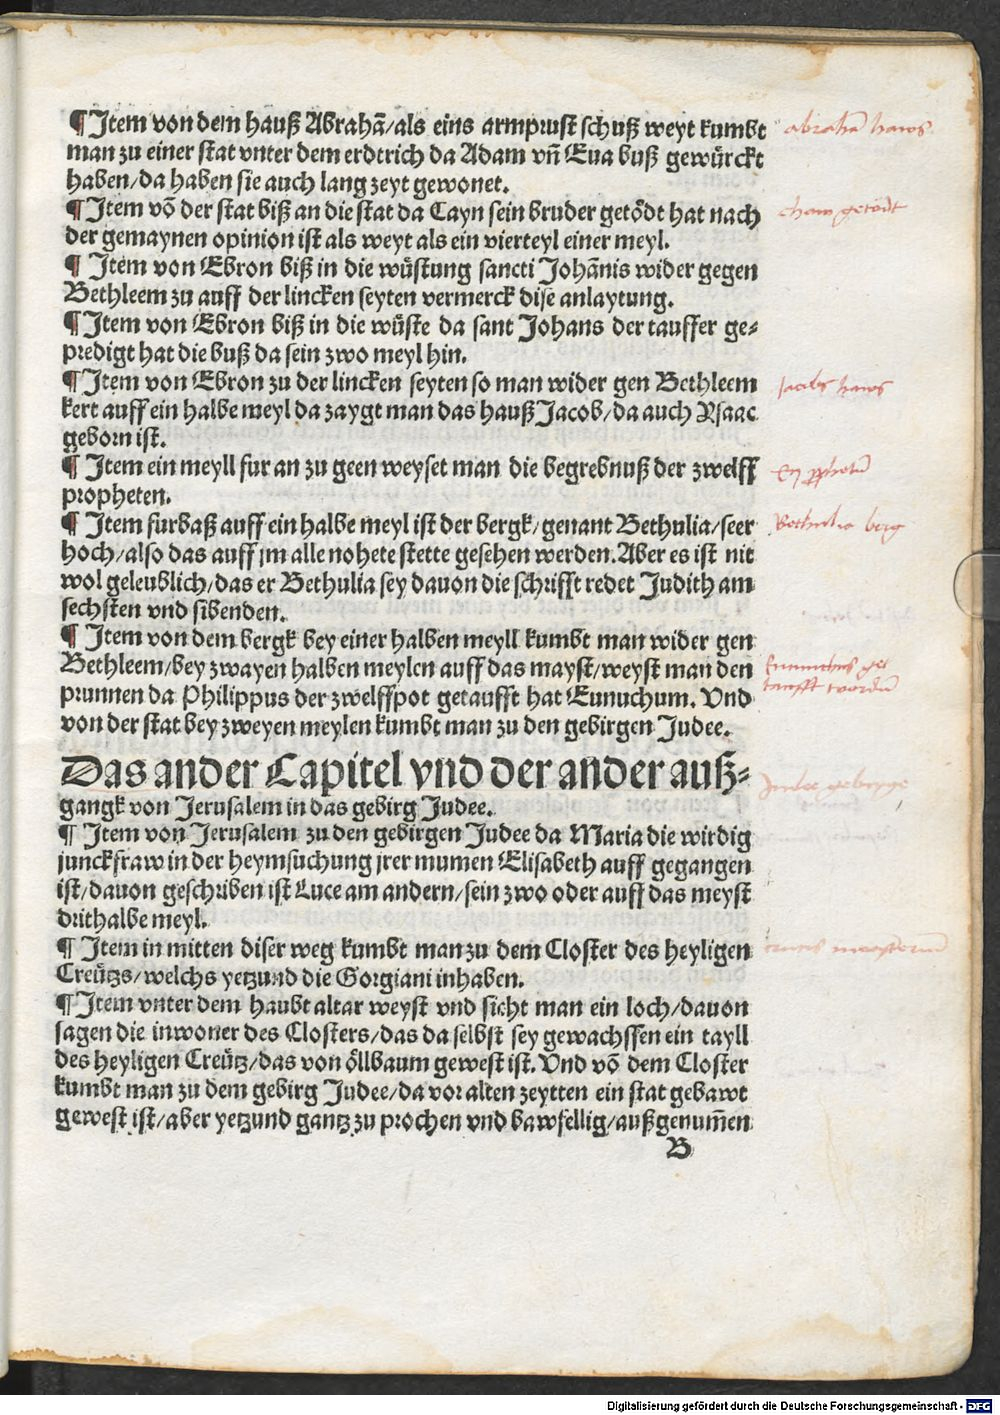 ¶ Item von dem hauß Abrahā/als eins armprust schuß weyt kumbt
man zu einer stat vnter dem erdtrich da Adam vn̄ Eua buß gewürckt
haben/da haben sie auch lang zeyt gewonet.
¶ Item vō der stat biß an die stat da Cayn sein bruder getödt hat nach
der gemaynen opinion ist als weyt als ein vierteyl einer meyl.
¶ Item von Ebron biß in die wüstung sancti Johānis wider gegen
Bethleem zu auff der lincken seyten vermerck dise anlaytung.
¶ Item von Ebron biß in die wüste da sant Johans der tauffer ge⸗
predigt hat die buß da sein zwo meyl hin.
¶ Item von Ebron zu der lincken seyten so man wider gen Bethleem
kert auff ein halbe meyl da zaygt man das hauß Jacob/da auch Ysaac
geborn ist.
¶ Item ein meyll fur an zu geen weyset man die begrebnuß der zwelff
propheten.
¶ Item furbaß auff ein halbe meyl ist der bergk/genant Bethulia/seer
hoch/also das auff jm alle nohete stette gesehen werden. Aber es ist nit
wol geleublich/das er Bethulia sey dauon die schrifft redet Judith am
sechsten vnd sibenden.
¶ Item von dem bergk bey einer halben meyll kumbt man wider gen
Bethleem/bey zwayen halben meylen auff das mayst/weyst man den
prunnen da Philippus der zwelffpot getaufft hat Eunuchum. Vnd
von der stat bey zweyen meylen kumbt man zu den gebirgen Judee.
Das ander Capitel vnd der ander auß⸗
gangk von Jerusalem in das gebirg Judee.
¶ Item von Jerusalem zu den gebirgen Judee da Maria die wirdig
junckfraw in der heymsuchung jrer mumen Elisabeth auff gegangen
ist/dauon geschriben ist Luce am andern/sein zwo oder auff das meyst
drithalbe meyl.
¶ Item in mitten diser weg kumbt man zu dem Closter des heyligen
Creützs/welchs yetzund die Gorgiani inhaben.
¶ Item vnter dem haubt altar weyst vnd sicht man ein loch/dauon
sagen die inwoner des Closters/das da selbst sey gewachssen ein tayll
des heyligen Creütz/das von öllbaum gewest ist. Vnd vō dem Closter
kumbt man zu dem gebirg Judee/da vor alten zeytten ein stat gebawt
gewest ist/aber yetzund gantz zu prochen vnd bawfellig/außgenum̄en
B
abrahā haws
getödt
Jacobs haws
Bethulia berg
Eunuchus ge
taufft wordn̄
Judee gebyrge
crucis monsterium̄
Digitalisierung gefördert durch die Deutsche Forschungsgemeinschaft - DFG